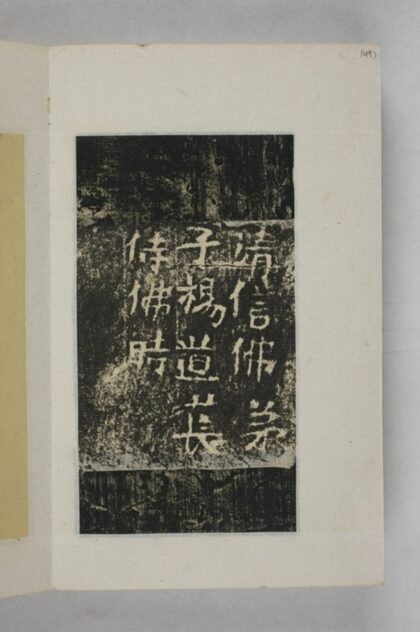 (49)
清信佛弟
子楊道萇
侍佛時